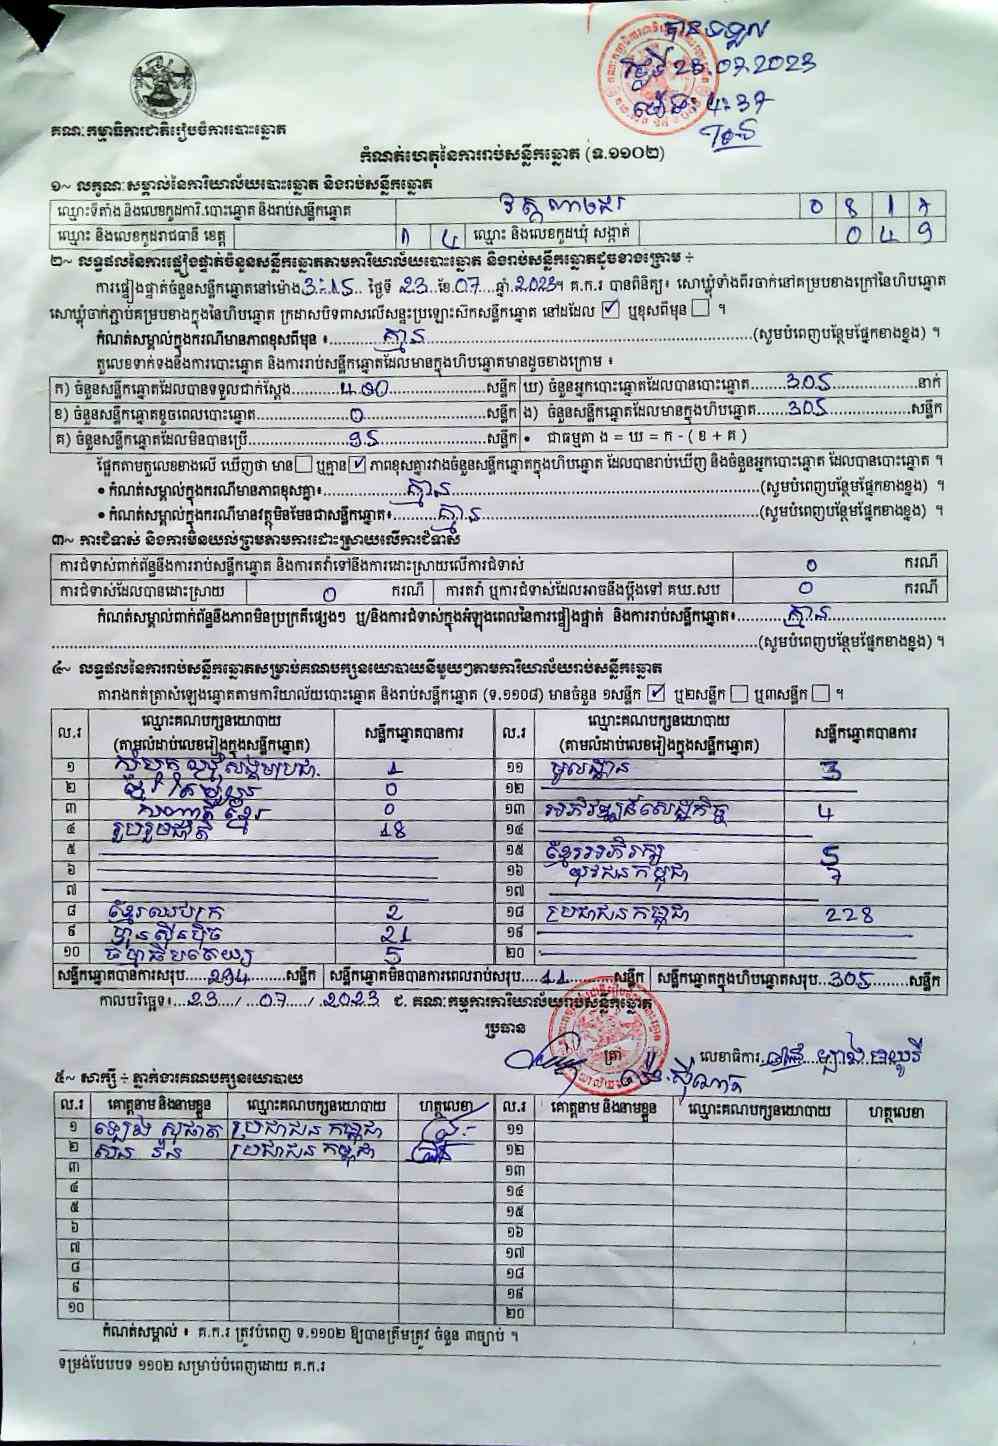 បានទទួល
ថ្ងៃទី 23.07.2023
ម៉ោង 4:37
គណៈកម្មាធិការជាតិរៀបចំការបោះឆ្នោត
កំណត់ហេតុនៃការរាប់សន្លឹកឆ្នោត (ទ.១១០២)
១~ លក្ខណៈសម្គាល់នៃការិយាល័យបោះឆ្នោត និងរាប់សន្លឹកឆ្នោត
ឈ្មោះទីតាំង និងលេខកូដការិ.បោះឆ្នោត និងរាប់សន្លឹកឆ្នោត 0 8 1
ឈ្មោះ និងលេខកូដរាជធានី ខេត្ត 1 4 ឈ្មោះ និងលេខកូដឃុំ សង្កាត់ 0 4 9
២~ លទ្ធផលនៃការផ្ទៀងផ្ទាត់ចំនួនសន្លឹកឆ្នោតតាមការិយាល័យបោះឆ្នោត និងរាប់សន្លឹកឆ្នោតដូចខាងក្រោម ÷
ការផ្ទៀងផ្ទាត់ចំនួនសន្លឹកឆ្នោតនៅម៉ោង 3:15 ថ្ងៃទី 23 ខែ 07 ឆ្នាំ 2023។ គ.ក.រ បានពិនិត្យ៖ សោឃ្លុំទាំងពីរចាក់នៅគម្របខាងក្រៅនៃហិបឆ្នោត
សោឃ្លុំចាក់ភ្ជាប់គម្របខាងក្នុងនៃហិបឆ្នោត ក្រដាសបិទពាសលើសន្ទះប្រឡោះស៊កសន្លឹកឆ្នោត នៅដដែល ☑ ឬខុសពីមុន ☐ ។
កំណត់សម្គាល់ក្នុងករណីមានភាពខុសពីមុន ៖ គ្មាន (សូមបំពេញបន្ថែមផ្នែកខាងខ្នង) ។
តួលេខទាក់ទងនឹងការបោះឆ្នោត និងការរាប់សន្លឹកឆ្នោតដែលមានក្នុងហិបឆ្នោតមានដូចខាងក្រោម ៖
ក) ចំនួនសន្លឹកឆ្នោតដែលបានទទួលជាក់ស្តែង 400 សន្លឹក ឃ) ចំនួនអ្នកបោះឆ្នោតដែលបានបោះឆ្នោត 305 នាក់
ខ) ចំនួនសន្លឹកឆ្នោតខូចពេលបោះឆ្នោត 0 សន្លឹក ង) ចំនួនសន្លឹកឆ្នោតដែលមានក្នុងហិបឆ្នោត 305 សន្លឹក
គ) ចំនួនសន្លឹកឆ្នោតដែលមិនបានប្រើ 95 សន្លឹក • ជាធម្មតា ង = ឃ = ក - ( ខ + គ )
ផ្អែកតាមតួលេខខាងលើ ឃើញថា មាន ☐ ឬគ្មាន ☑ ភាពខុសគ្នារវាងចំនួនសន្លឹកឆ្នោតក្នុងហិបឆ្នោត ដែលបានរាប់ឃើញ និងចំនួនអ្នកបោះឆ្នោត ដែលបានបោះឆ្នោត ។
• កំណត់សម្គាល់ក្នុងករណីមានភាពខុសគ្នា៖ គ្មាន (សូមបំពេញបន្ថែមផ្នែកខាងខ្នង) ។
• កំណត់សម្គាល់ក្នុងករណីមានវត្ថុមិនមែនជាសន្លឹកឆ្នោត៖ គ្មាន (សូមបំពេញបន្ថែមផ្នែកខាងខ្នង) ។
៣~ ការជំទាស់ និងការមិនយល់ព្រមតាមការដោះស្រាយលើការជំទាស់
ការជំទាស់ពាក់ព័ន្ធនឹងការរាប់សន្លឹកឆ្នោត និងការតវ៉ាទៅនឹងការដោះស្រាយលើការជំទាស់ 0 ករណី
ការជំទាស់ដែលបានដោះស្រាយ 0 ករណី ការតវ៉ា ឬការជំទាស់ដែលអាចនឹងប្តឹងទៅ គឃ.សប 0 ករណី
កំណត់សម្គាល់ពាក់ព័ន្ធនឹងភាពមិនប្រក្រតីផ្សេងៗ ឬ/និងការជំទាស់ក្នុងអំឡុងពេលនៃការផ្ទៀងផ្ទាត់ និងការរាប់សន្លឹកឆ្នោត៖ គ្មាន
(សូមបំពេញបន្ថែមផ្នែកខាងខ្នង) ។
៤~ លទ្ធផលនៃការរាប់សន្លឹកឆ្នោតសម្រាប់គណបក្សនយោបាយនីមួយៗតាមការិយាល័យរាប់សន្លឹកឆ្នោត
តារាងកត់ត្រាសំឡេងឆ្នោតតាមការិយាល័យបោះឆ្នោត និងរាប់សន្លឹកឆ្នោត (ទ.១១០៨) មានចំនួន ១សន្លឹក ☑ ឬ២សន្លឹក ☐ ឬ៣សន្លឹក ☐ ។
ល.រ ឈ្មោះគណបក្សនយោបាយ (តាមលំដាប់លេខរៀងក្នុងសន្លឹកឆ្នោត) សន្លឹកឆ្នោតបានការ ល.រ ឈ្មោះគណបក្សនយោបាយ (តាមលំដាប់លេខរៀងក្នុងសន្លឹកឆ្នោត) សន្លឹកឆ្នោតបានការ
១ 1 ១១ មូលដ្ឋាន 3
២ 0 ១២
៣ ខ្មែរ 0 ១៣ អភិវឌ្ឍន៍សេដ្ឋកិច្ច 4
៤ រួបរួមជាតិ 18 ១៤
៥ ១៥ ខ្មែរអភិរក្ស 5
៦ ១៦ យុវជនកម្ពុជា 7
៧ ១៧
៨ ខ្មែរឈប់ក្រ 2 ១៨ ប្រជាជនកម្ពុជា 228
៩ ហ៊្វុនស៊ិនប៉ិច 21 ១៩
១០ 5 ២០
សន្លឹកឆ្នោតបានការសរុប 294 សន្លឹក សន្លឹកឆ្នោតមិនបានការពេលរាប់សរុប 11 សន្លឹក សន្លឹកឆ្នោតក្នុងហិបឆ្នោតសរុប 305 សន្លឹក
កាលបរិច្ឆេទ៖ 23 / 07 / 2023 ជ. គណៈកម្មការការិយាល័យរាប់សន្លឹកឆ្នោត
ប្រធាន
ត្រា លេខាធិការ
៥~ សាក្សី ÷ ភ្នាក់ងារគណបក្សនយោបាយ
ល.រ គោត្តនាម និងនាមខ្លួន ឈ្មោះគណបក្សនយោបាយ ហត្ថលេខា ល.រ គោត្តនាម និងនាមខ្លួន ឈ្មោះគណបក្សនយោបាយ ហត្ថលេខា
១ ឡេង សុផាត ប្រជាជនកម្ពុជា ១១
២ ប្រជាជនកម្ពុជា ១២
៣ ១៣
៤ ១៤
៥ ១៥
៦ ១៦
៧ ១៧
៨ ១៨
៩ ១៩
១០ ២០
កំណត់សម្គាល់ ៖ គ.ក.រ ត្រូវបំពេញ ទ.១១០២ ឱ្យបានត្រឹមត្រូវ ចំនួន ៣ច្បាប់ ។
ទម្រង់បែបបទ ១១០២ សម្រាប់បំពេញដោយ គ.ក.រ